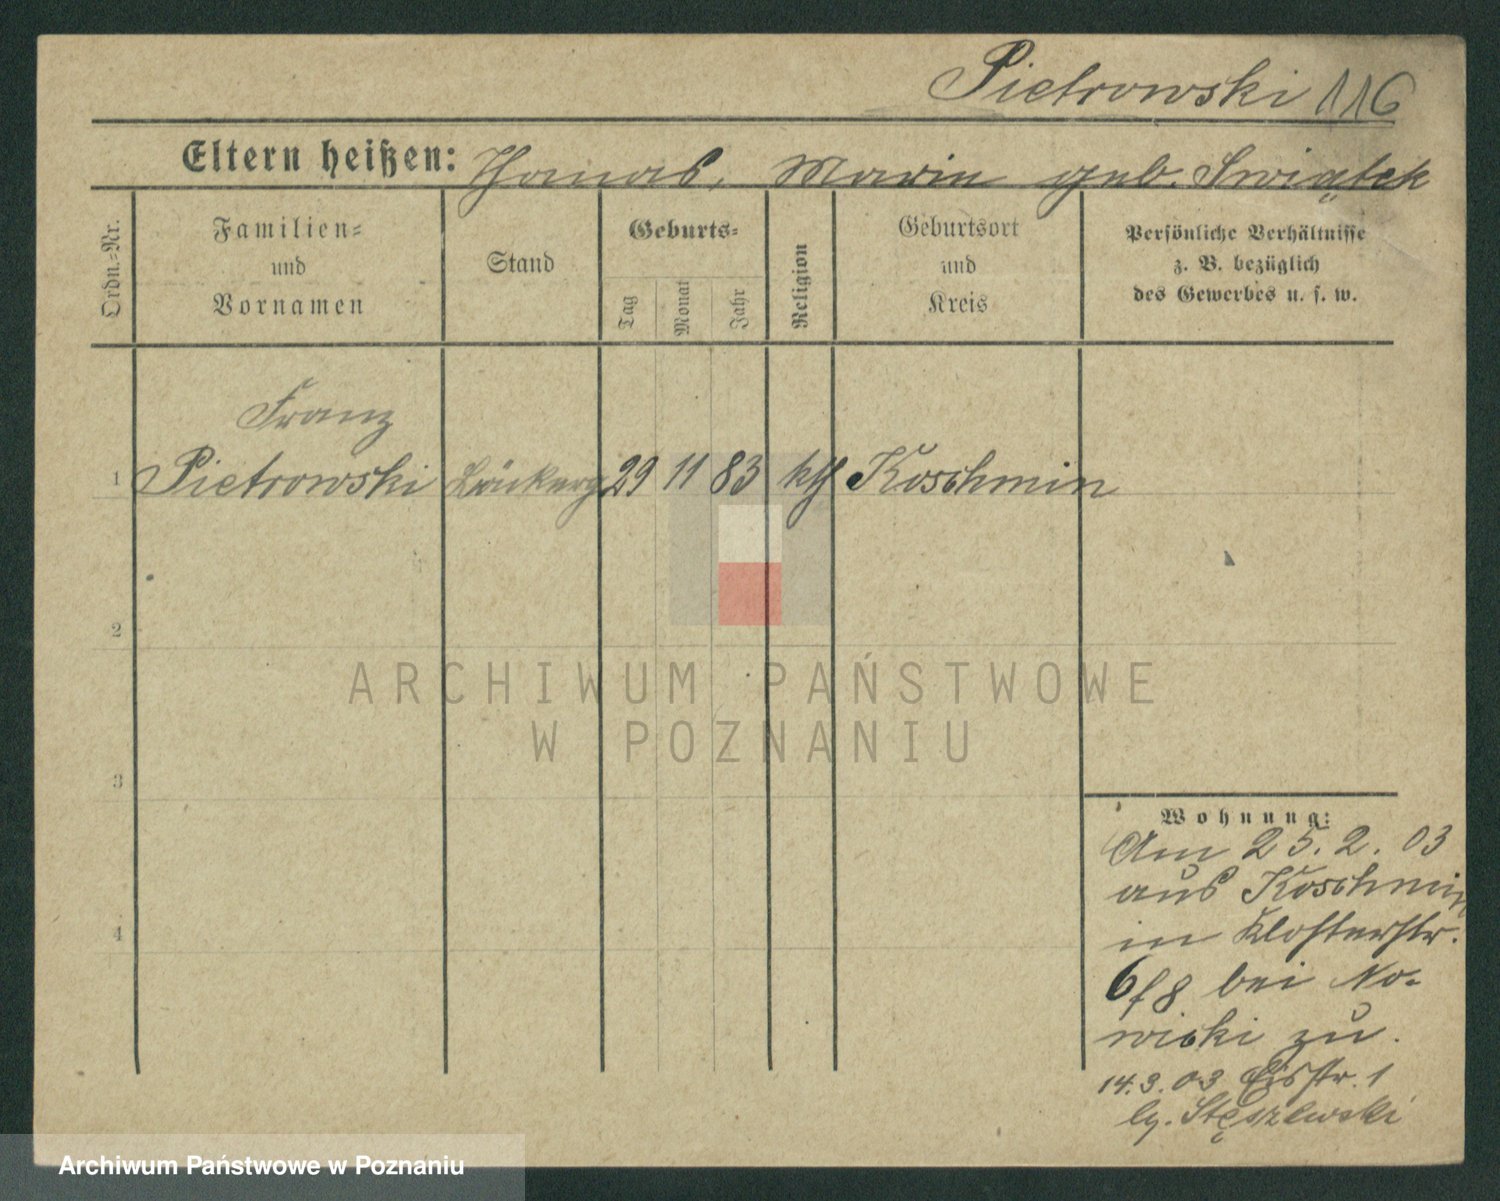 Pietrowski 116
Eltern heißen: Thomas, Marin geb. Swiątek
Ordn.=Nr.
Familien=
und
Vornamen
Stand
Geburts=
Tag
Monat
Jahr
Religion
Geburtsort
und
Kreis
Persönliche Verhältnisse
z. B. bezüglich
des Gewerbes u. s. w.
Franz
1 Pietrowski 29 11 83 kth Koschmin
2
3
4
Wohnung:
Am 25.2.03
aus Koschmin
in Klosterstr.
6/8 bei No-
wicki zu.
14.3.03 Eisstr. 1
Stęszewski
ARCHIWUM PAŃSTWOWE
W POZNANIU
Archiwum Państwowe w Poznaniu